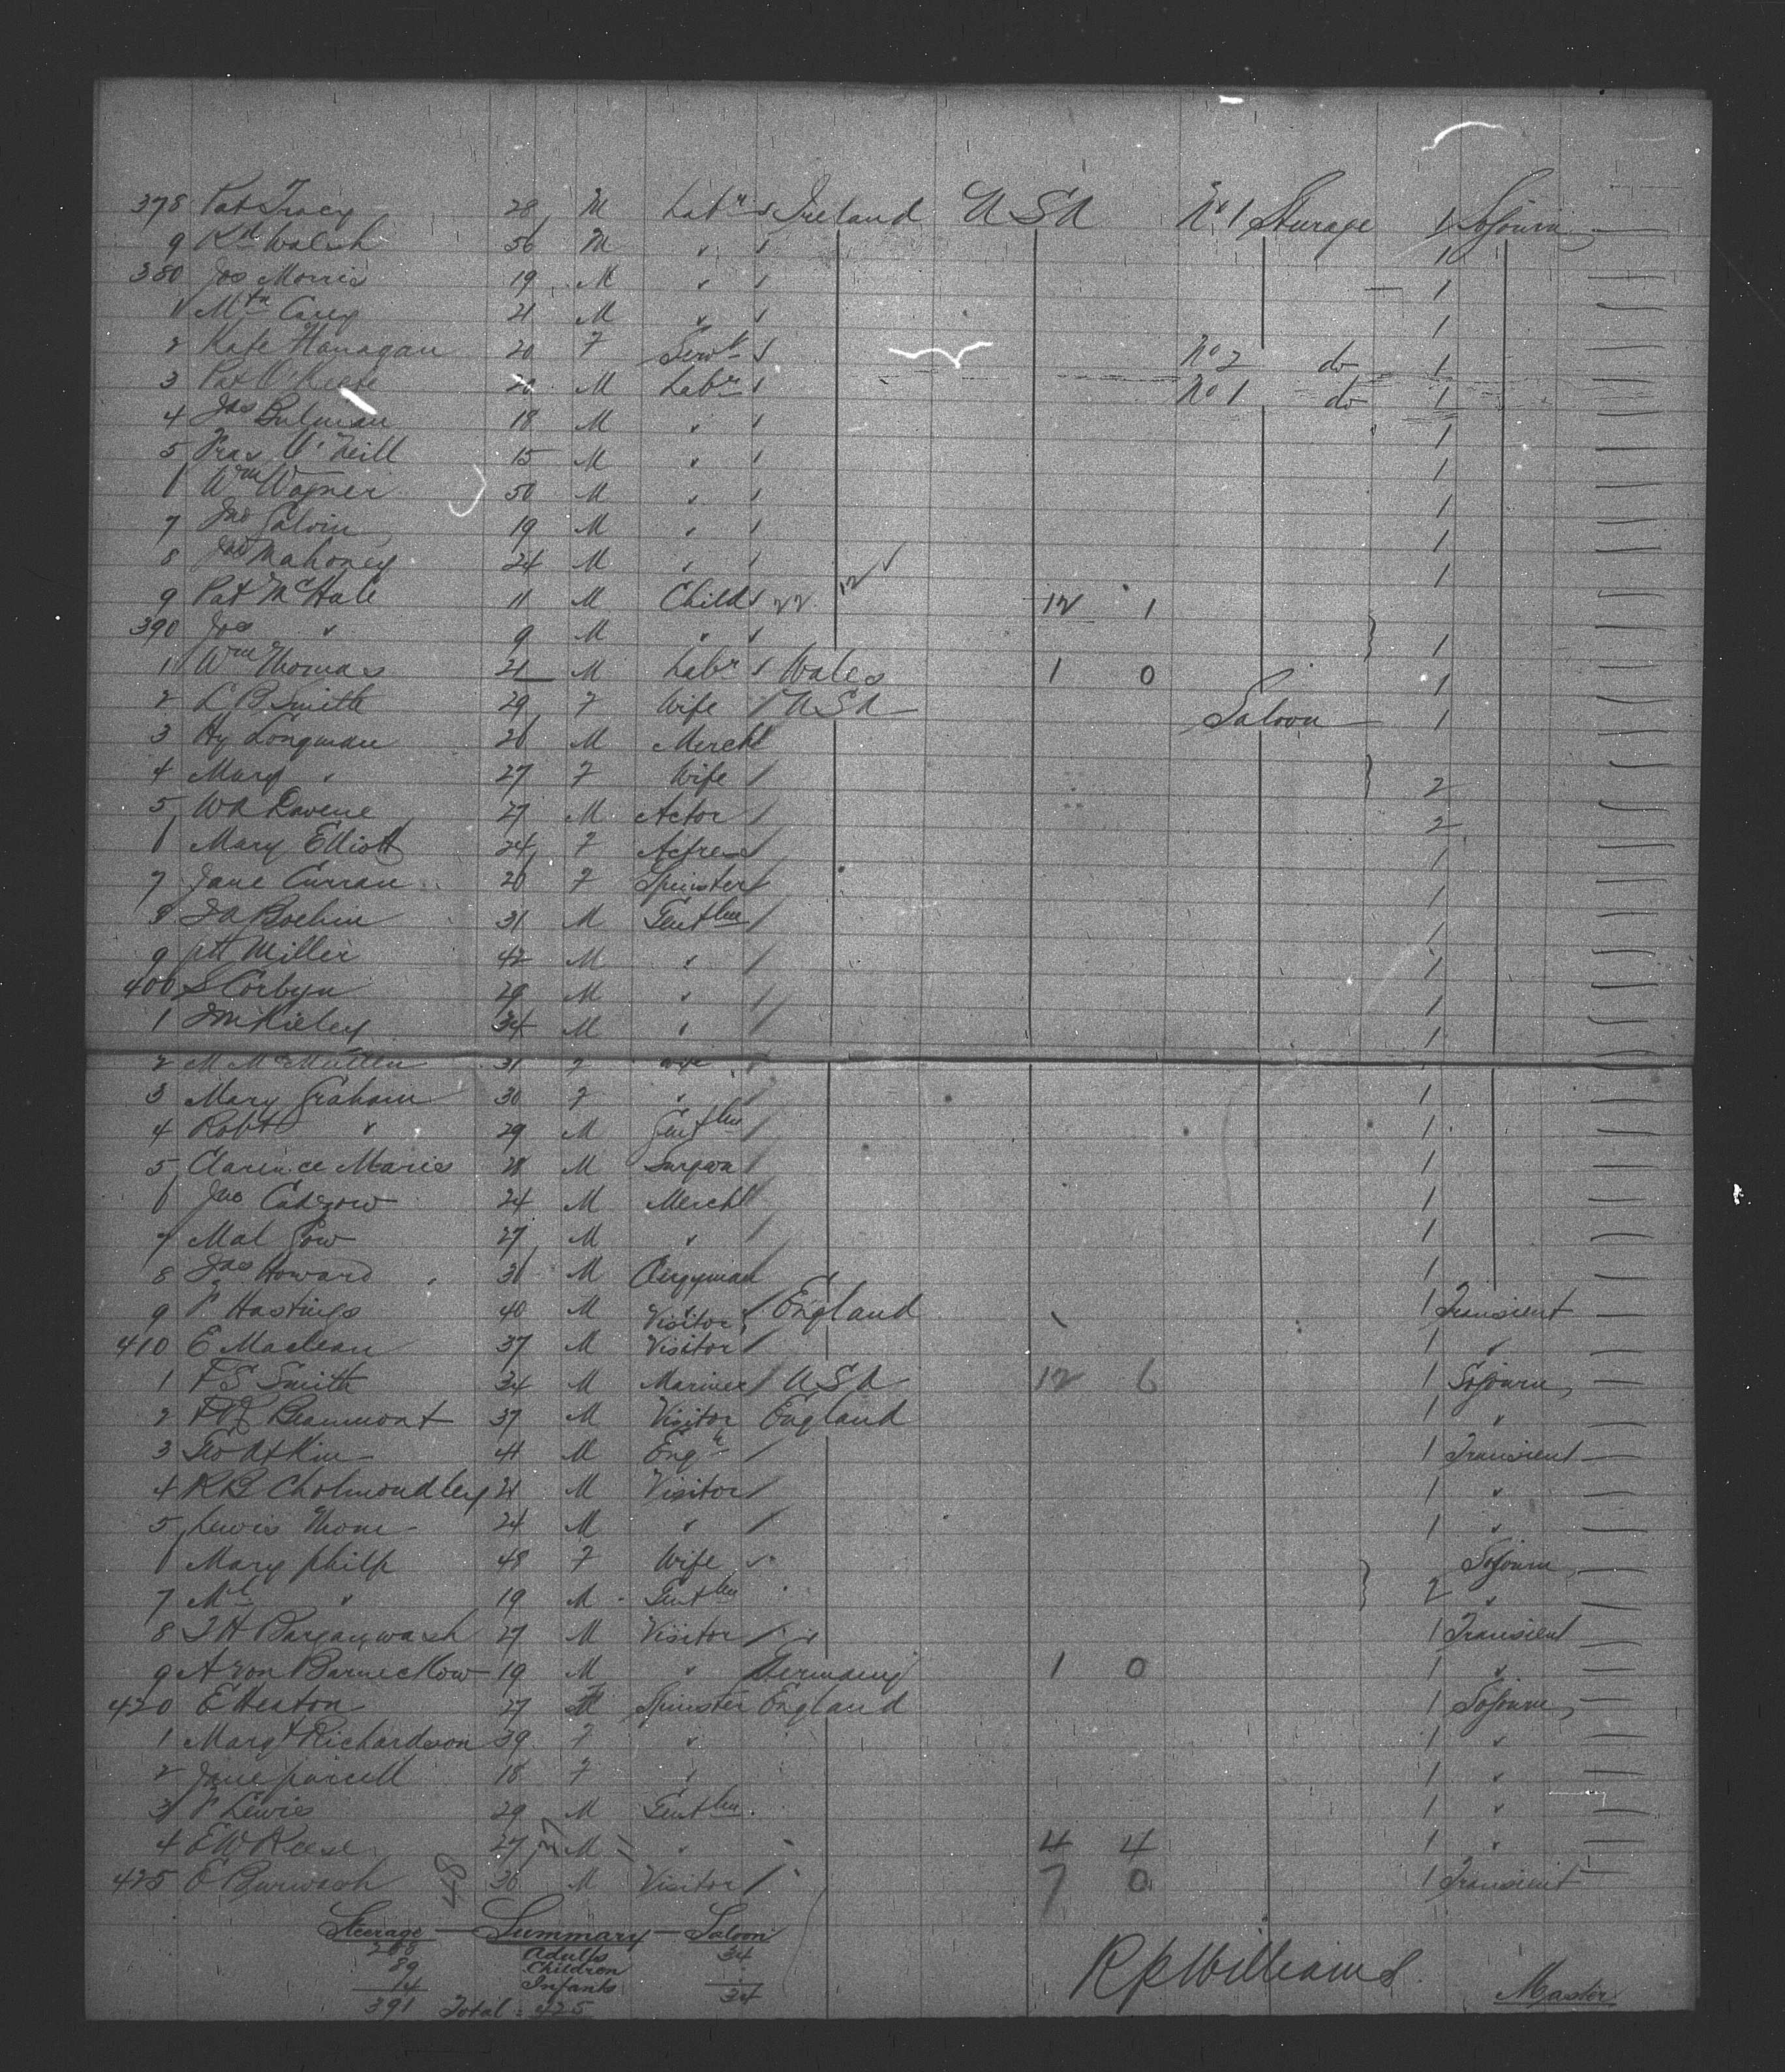 378 Pat Tracy 28 M Labr Ireland USA No 1 Sturage 1 Sojourn
9 Rd Walsh 56 M " 1
380 Jos Morris 19 M " 1
1 Mtn Carey 21 M " 1
2 Kate Hanagan 20 F Servt No 2 do 1
3 Pat O'Keefe 20 M Labr No 1 do 1
4 Jas Bulman 18 M " 1
5 Fras O'Neill 15 M " 1
6 Wm Wagner 50 M " 1
7 Jno Galvin 19 M " 1
8 Mahoney 24 M " 1
9 Pat McHale 11 M Child 22 12 12 1
390 Jos " 9 M " 1
1 Wm Thomas 21 M Labr Wales 1 0 1
2 L B Smith 29 F Wife USA Saloon 1
3 Hy Longman 26 M Mercht
4 Mary " 27 F Wife 2
5 27 M Actor 2
6 Mary Elliott 24 F Actress 1
7 Jane Curran 20 F Spinster 1
8 31 M Gentlm 1
9 Miller 42 M " 1
400 S Corbyn 29 M " 1
1 Kieley 34 M " 1
2 M McMullen 31 F Wife
3 Mary Graham 30 F " 1
4 Robt " 29 M Gentlm 1
5 Clarence Maries 28 M Surgeon 1
6 Jno Cadzow 24 M Mercht 1
7 Mal Gow 27 M " 1
8 Jas Howard M Clergyman 1
9 P Hastings 40 M Visitor England 1 Transient
410 E Maclean 37 M Visitor 1 "
1 F S Smith 34 M Mariner USA 12 6 1 Sojourn
2 Beaumont 37 M Visitor England 1 "
3 Geo Atkin 41 M Engr 1 Transient
4 R B Cholmondley 21 M Visitor 1 "
5 Lewis Thom 24 M " 1 "
6 Mary Philp 48 F Wife Sojourn
7 " 19 M Gentlm 2 "
8 27 M Visitor 1 Transient
9 A von Barnecklow 19 M " Germany 1 0 1 "
420 E Heaton 27 F Spinster England 1 Sojourn
1 Margt Richardson 39 F " 1 "
2 Jane Purcell 18 F " 1 "
3 P Lewis 29 M Gentlm 1 "
4 E W Reese 27 M " 4 4 1 "
425 E Burwash 30 M Visitor 7 0 1 Transient
48
Steerage — Summary — Saloon
288 Adults 34
89 Children
14 Infants
391 Total = 425 34
R P Williams Master